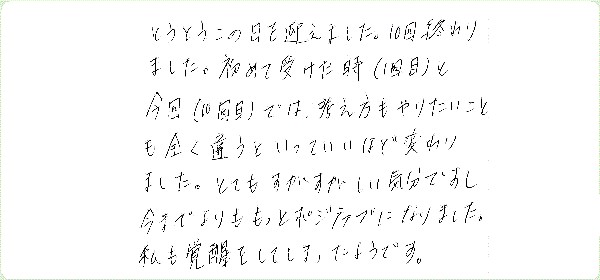 とうとうこの日を迎えました。10回終わり
ました。初めて受けた時(1回目)と
今回(10回目)では、考え方もやりたいこと
も全く違うといっていいほど変わり
ました。とてもすがすがしい気分ですし
今までよりももっとポジティブになりました。
私も覚醒をしてしまったようです。